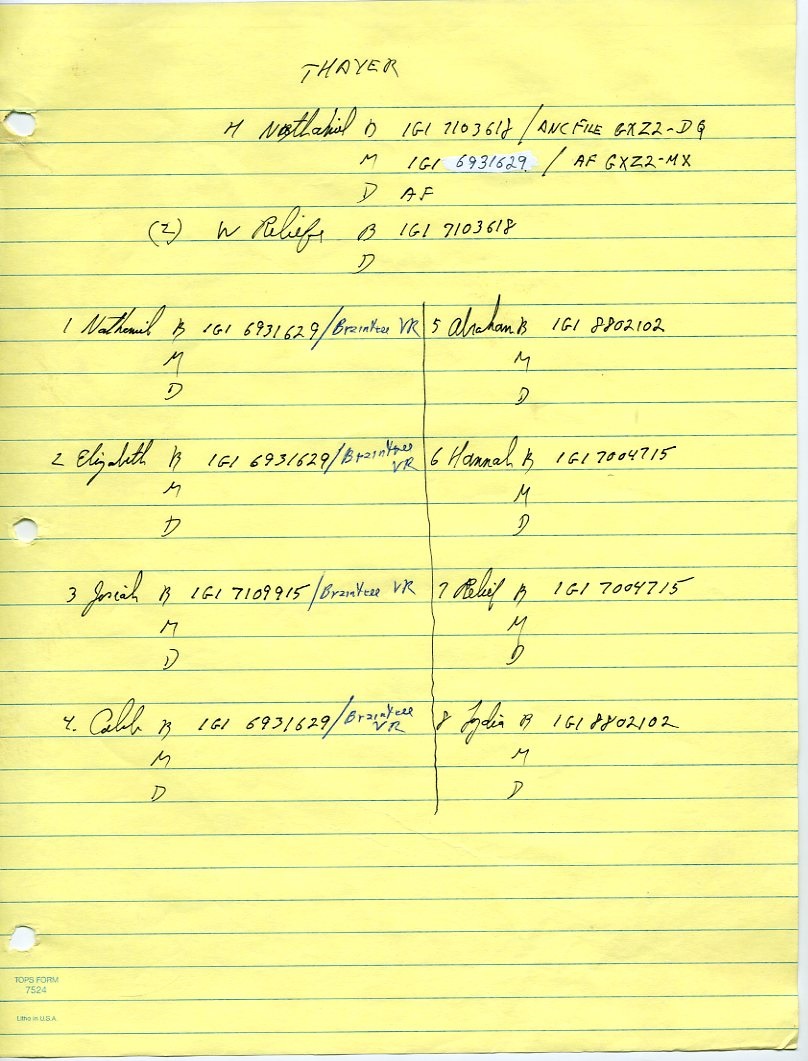 THAYER
H Nathaniel B IGI 7103618 / ANC FILE GXZ2-DQ
M IGI 6931629. / AF GXZ2-MX
D AF
(2) W Relief B IGI 7103618
D
1 Nathaniel B IGI 6931629/Braintree VR
M
D
2 Elizabeth B IGI 6931629/Braintree VR
M
D
3 Josiah B IGI 7109915/Braintree VR
M
D
4. Caleb B IGI 6931629/Braintree VR
M
D
5 Abraham B IGI 8802102
M
D
6 Hannah B IGI 7004715
M
D
7 Relief B IGI 7004715
M
D
8 Lydia B IGI 8802102
M
D
TOPS FORM
7524
Litho in U.S.A.